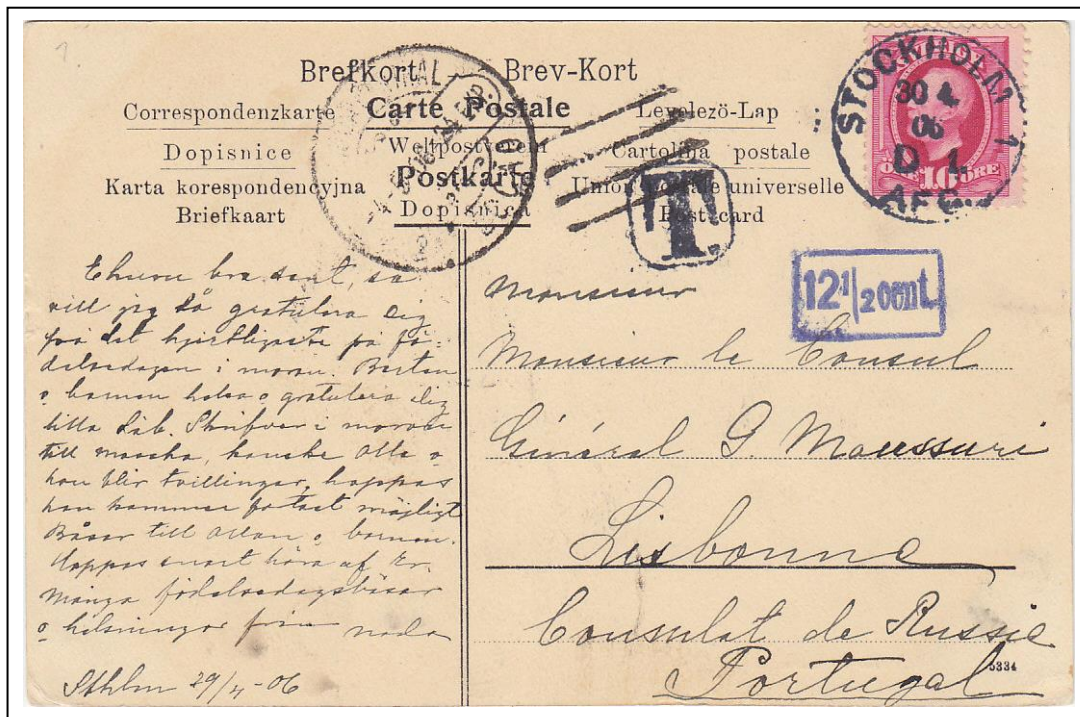 Brefkort Brev-Kort
Correspondenzkarte Carte Postale Levelezö-Lap
Dopisnice Weltpostverein Cartolina postale
Karta korespondencyjna Postkarte Union postale universelle
Briefkaart Dopisnica Post card
STOCKHOLM 1
30 4.
06
D. 1.
AFG.
ÖRE 10 ÖRE
T.
12 1/2 cent.
vill jag då gratulera Dig
på det hjertligaste på fö-
delsedagen i
gratulera Dig
i
till kanske Olla o
hon blir tvillingar, hoppas
hon kommer fortast möjligt
till o barnen.
Hoppas snart höra af Er.
Många födelsedagskÿssar
o helsningar från
Sthlm 29/4-06
Monsieur
Monsieur le Consul
Général G.
Lisbonne
Consulat de Russie
Portugal
5334